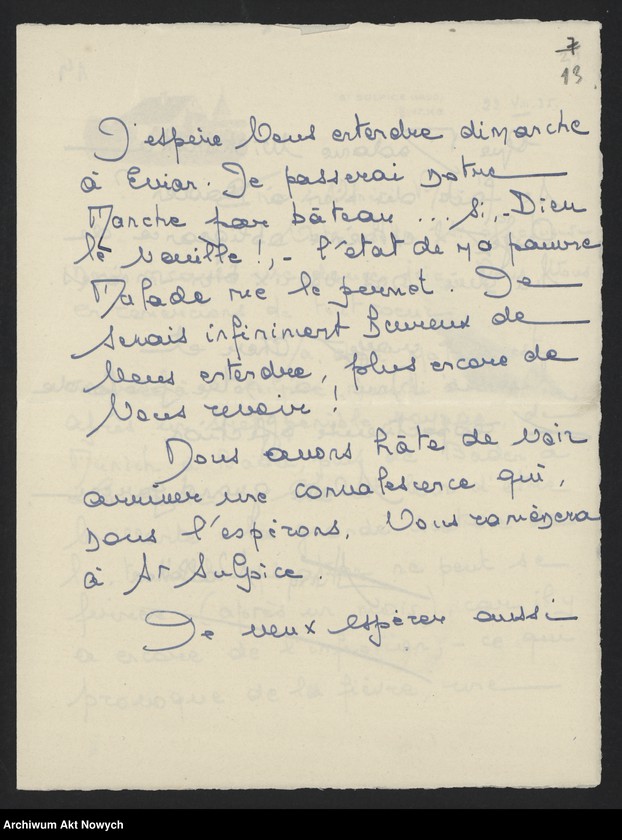 7
13
J'espère Vous entendre dimanche
à Evian. Je passerai Notre
Manche par bâteau ... si, - Dieu
le veuille !, - l'état de ma pauvre
Malade me le permet. Je
serais infiniment heureux de
Vous entendre, plus encore de
Vous revoir !
Nous avons hâte de voir
arriver une convalescence qui,
nous l'espérons, Vous ramènera
à St Sulpice.
Je veux espérer aussi
Archiwum Akt Nowych